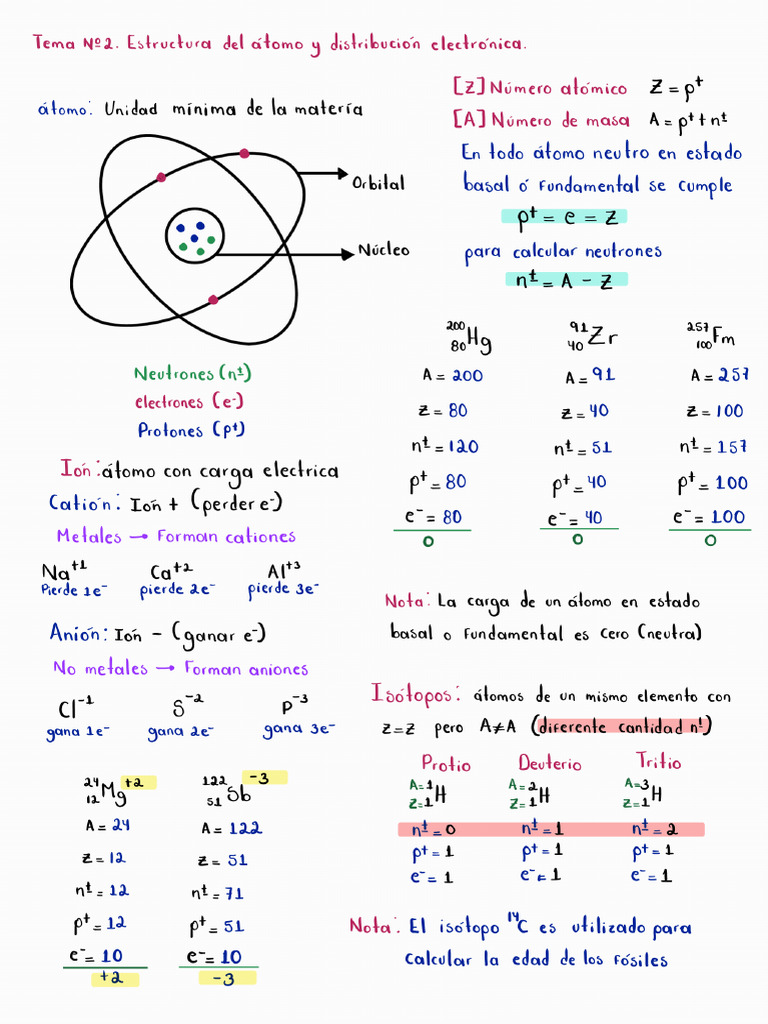 Tema Nº2. Estructura del átomo y distribución electrónica.
átomo: Unidad mínima de la matería
Orbital
Núcleo
Neutrones (n±)
electrones (e⁻)
Protones (p⁺)
Ión: átomo con carga electrica
Catión: Ión + (perder e⁻)
Metales → Forman cationes
Na⁺¹ Ca⁺² Al⁺³
Pierde 1e⁻ pierde 2e⁻ pierde 3e⁻
Anión: Ión - (ganar e⁻)
No metales → Forman aniones
Cl⁻¹ S⁻² P⁻³
gana 1e⁻ gana 2e⁻ gana 3e⁻
²⁴₁₂Mg⁺² ¹²²₅₁Sb⁻³
A = 24 A = 122
Z = 12 Z = 51
n± = 12 n± = 71
p⁺ = 12 p⁺ = 51
e⁻ = 10 e⁻ = 10
+2 -3
[Z] Número atómico Z = p⁺
[A] Número de masa A = p⁺ + n±
En todo átomo neutro en estado
basal ó fundamental se cumple
p⁺ = e = Z
para calcular neutrones
n± = A - Z
²⁰⁰₈₀Hg ⁹¹₄₀Zr ²⁵⁷₁₀₀Fm
A = 200 A = 91 A = 257
Z = 80 Z = 40 Z = 100
n± = 120 n± = 51 n± = 157
p⁺ = 80 p⁺ = 40 p⁺ = 100
e⁻ = 80 e⁻ = 40 e⁻ = 100
0 0 0
Nota: La carga de un átomo en estado
basal o fundamental es cero (neutra)
Isótopos: átomos de un mismo elemento con
Z=Z pero A≠A (diferente cantidad n±)
Protio Deuterio Tritio
A=1 A=2 A=3
Z=1 H Z=1 H Z=1 H
n± = 0 n± = 1 n± = 2
p⁺ = 1 p⁺ = 1 p⁺ = 1
e⁻ = 1 e⁻ = 1 e⁻ = 1
Nota: El isótopo ¹⁴C es utilizado para
calcular la edad de los fósiles